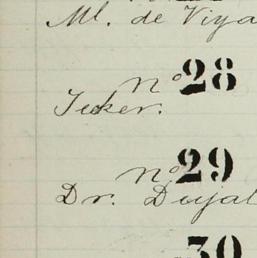 Ml. de Viya
No 28
Teker.
No 29
Dr. Dujal
30